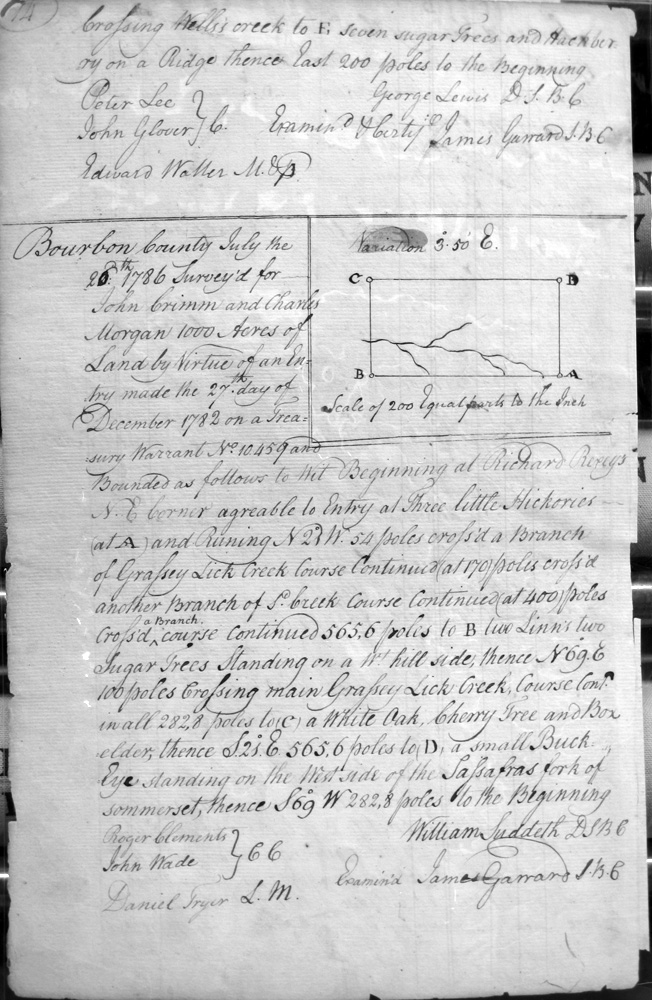 74
Crossing Wells's creek to E seven sugar Trees and Hackber
ry on a Ridge thence East 200 poles to the Beginning
Peter Lee
John Glover } C.
George Lewis D.S.B.C
Examin'd & Certy'd James Garrard S.B.C
Edward Waller M.&p
Bourbon County July the
26th 1786 Survey'd for
John Crimm and Charles
Morgan 1000 Acres of
Land by Virtue of an En-
try made the 27th day of
December 1782 on a Trea-
sury Warrant No 10459 and
Variation 3.50 E.
C D
B A
Scale of 200 Equal parts to the Inch
Bounded as follows to Wit Beginning at Richard
N.E Corner agreable to Entry at Three little Hickories
(at A) and Runing N 21 W. 54 poles cross'd a Branch
of Grassey Lick Creek Course Continued (at 170) poles cross'd
another Branch of Sd Creek Course Continued (at 400) poles
Cross'd a Branch, course Continued 565,6 poles to B two Linn's two
Sugar Trees Standing on a Wt hill side, thence N 69 E
100 poles Crossing main Grassey Lick Creek, Course Cont
in all 282,8 poles to (C) a White Oak, Cherry Tree and Box
elder, thence S.21.E 565,6 poles to (D) a small Buck-
Eye standing on the West side of the Sassafras fork of
sommerset, thence S 69 W 282,8 poles to the Beginning
Roger Clements
John Wade } CC
William Suddeth DSBC
Examin'd James Garrard S.B.C
Daniel Fryer L.M.